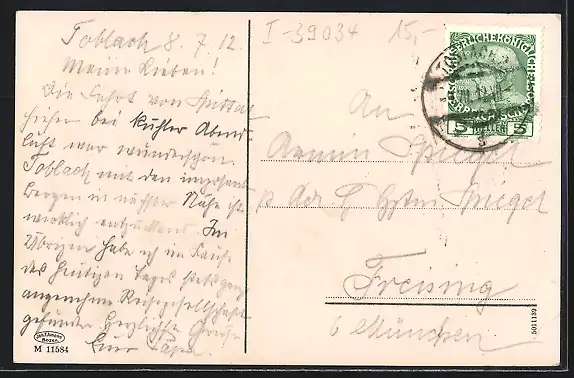 Toblach 8. 7. 12.
Meine Lieben!
Die Fahrt von Spittal
hieher bei kühler Abend-
luft war wunderschön.
Toblach mit den imposanten
Bergen in nächster Nähe ist
wirklich entzückend. Im
Übrigen habe ich im Laufe
des heutigen Tages stets ganz
angenehme Reisegesellschaft
gefunden. Herzlichste Grüße
Euer Papa.
I-39034
15,-
An
Armin Spiegel
Spiegel
Freising
b München
5 HELLER 5
M 11584
5011192